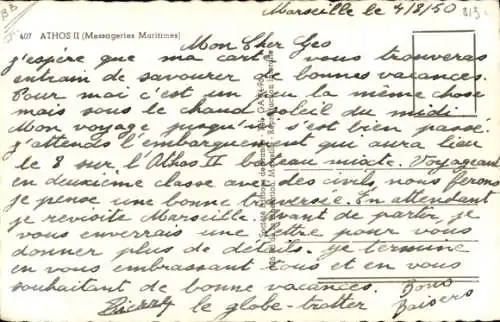 Marseille le 4/8/50
407 ATHOS II (Messageries Maritimes)
Mon Cher Geo
j'espère que ma carte vous trouveras
entrain de savourer de bonnes vacances.
Pour moi c'est un peu la même chose
mais sous le chaud soleil du midi
Mon voyage jusqu'ici s'est bien passé.
j'attends l'embarquement qui aura lieu
le 8 sur l'Athos II bateau mixte. Voyageant
en deuxième classe avec des civils, nous ferons
je pense une bonne traversée. En attendant
je revisite Marseille. Avant de partir, je
vous enverrais une lettre pour vous
donner plus de détails. Je termine
en vous embrassant tous et en vous
souhaitant de bonne vacances. Bons
Baisers
Pierrot le globe-trotter